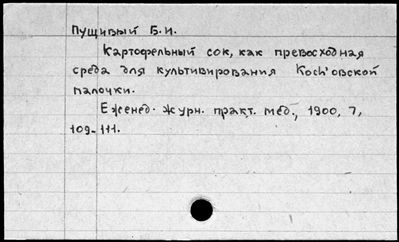 Пущивый Б.И.
Картофельный сок, как превосходная
среда для культивирования Koch'овской
палочки.
Еженед. журн. практ. мед., 1900, 7,
109-111.